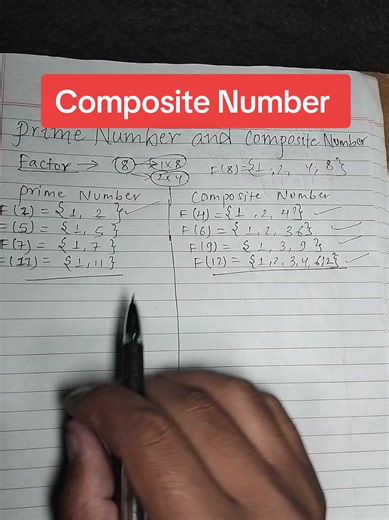 Composite Number
Prime Number and Composite Number
Factor → 8 1×8 F(8)={1, 2, 4, 8}
2×4
Prime Number
F(2) = {1, 2}
F(5) = {1, 5}
F(7) = {1, 7}
F(11) = {1, 11}
Composite Number
F(4) = {1, 2, 4}
F(6) = {1, 2, 3 6}
F(9) = {1, 3, 9}
F(12) = {1, 2, 3, 4, 6, 12}